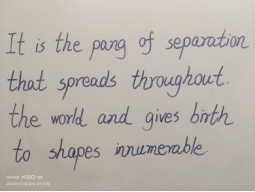 It is the pang of separation
that spreads throughout.
the world and gives birth
to shapes innumerable.
vivo X50